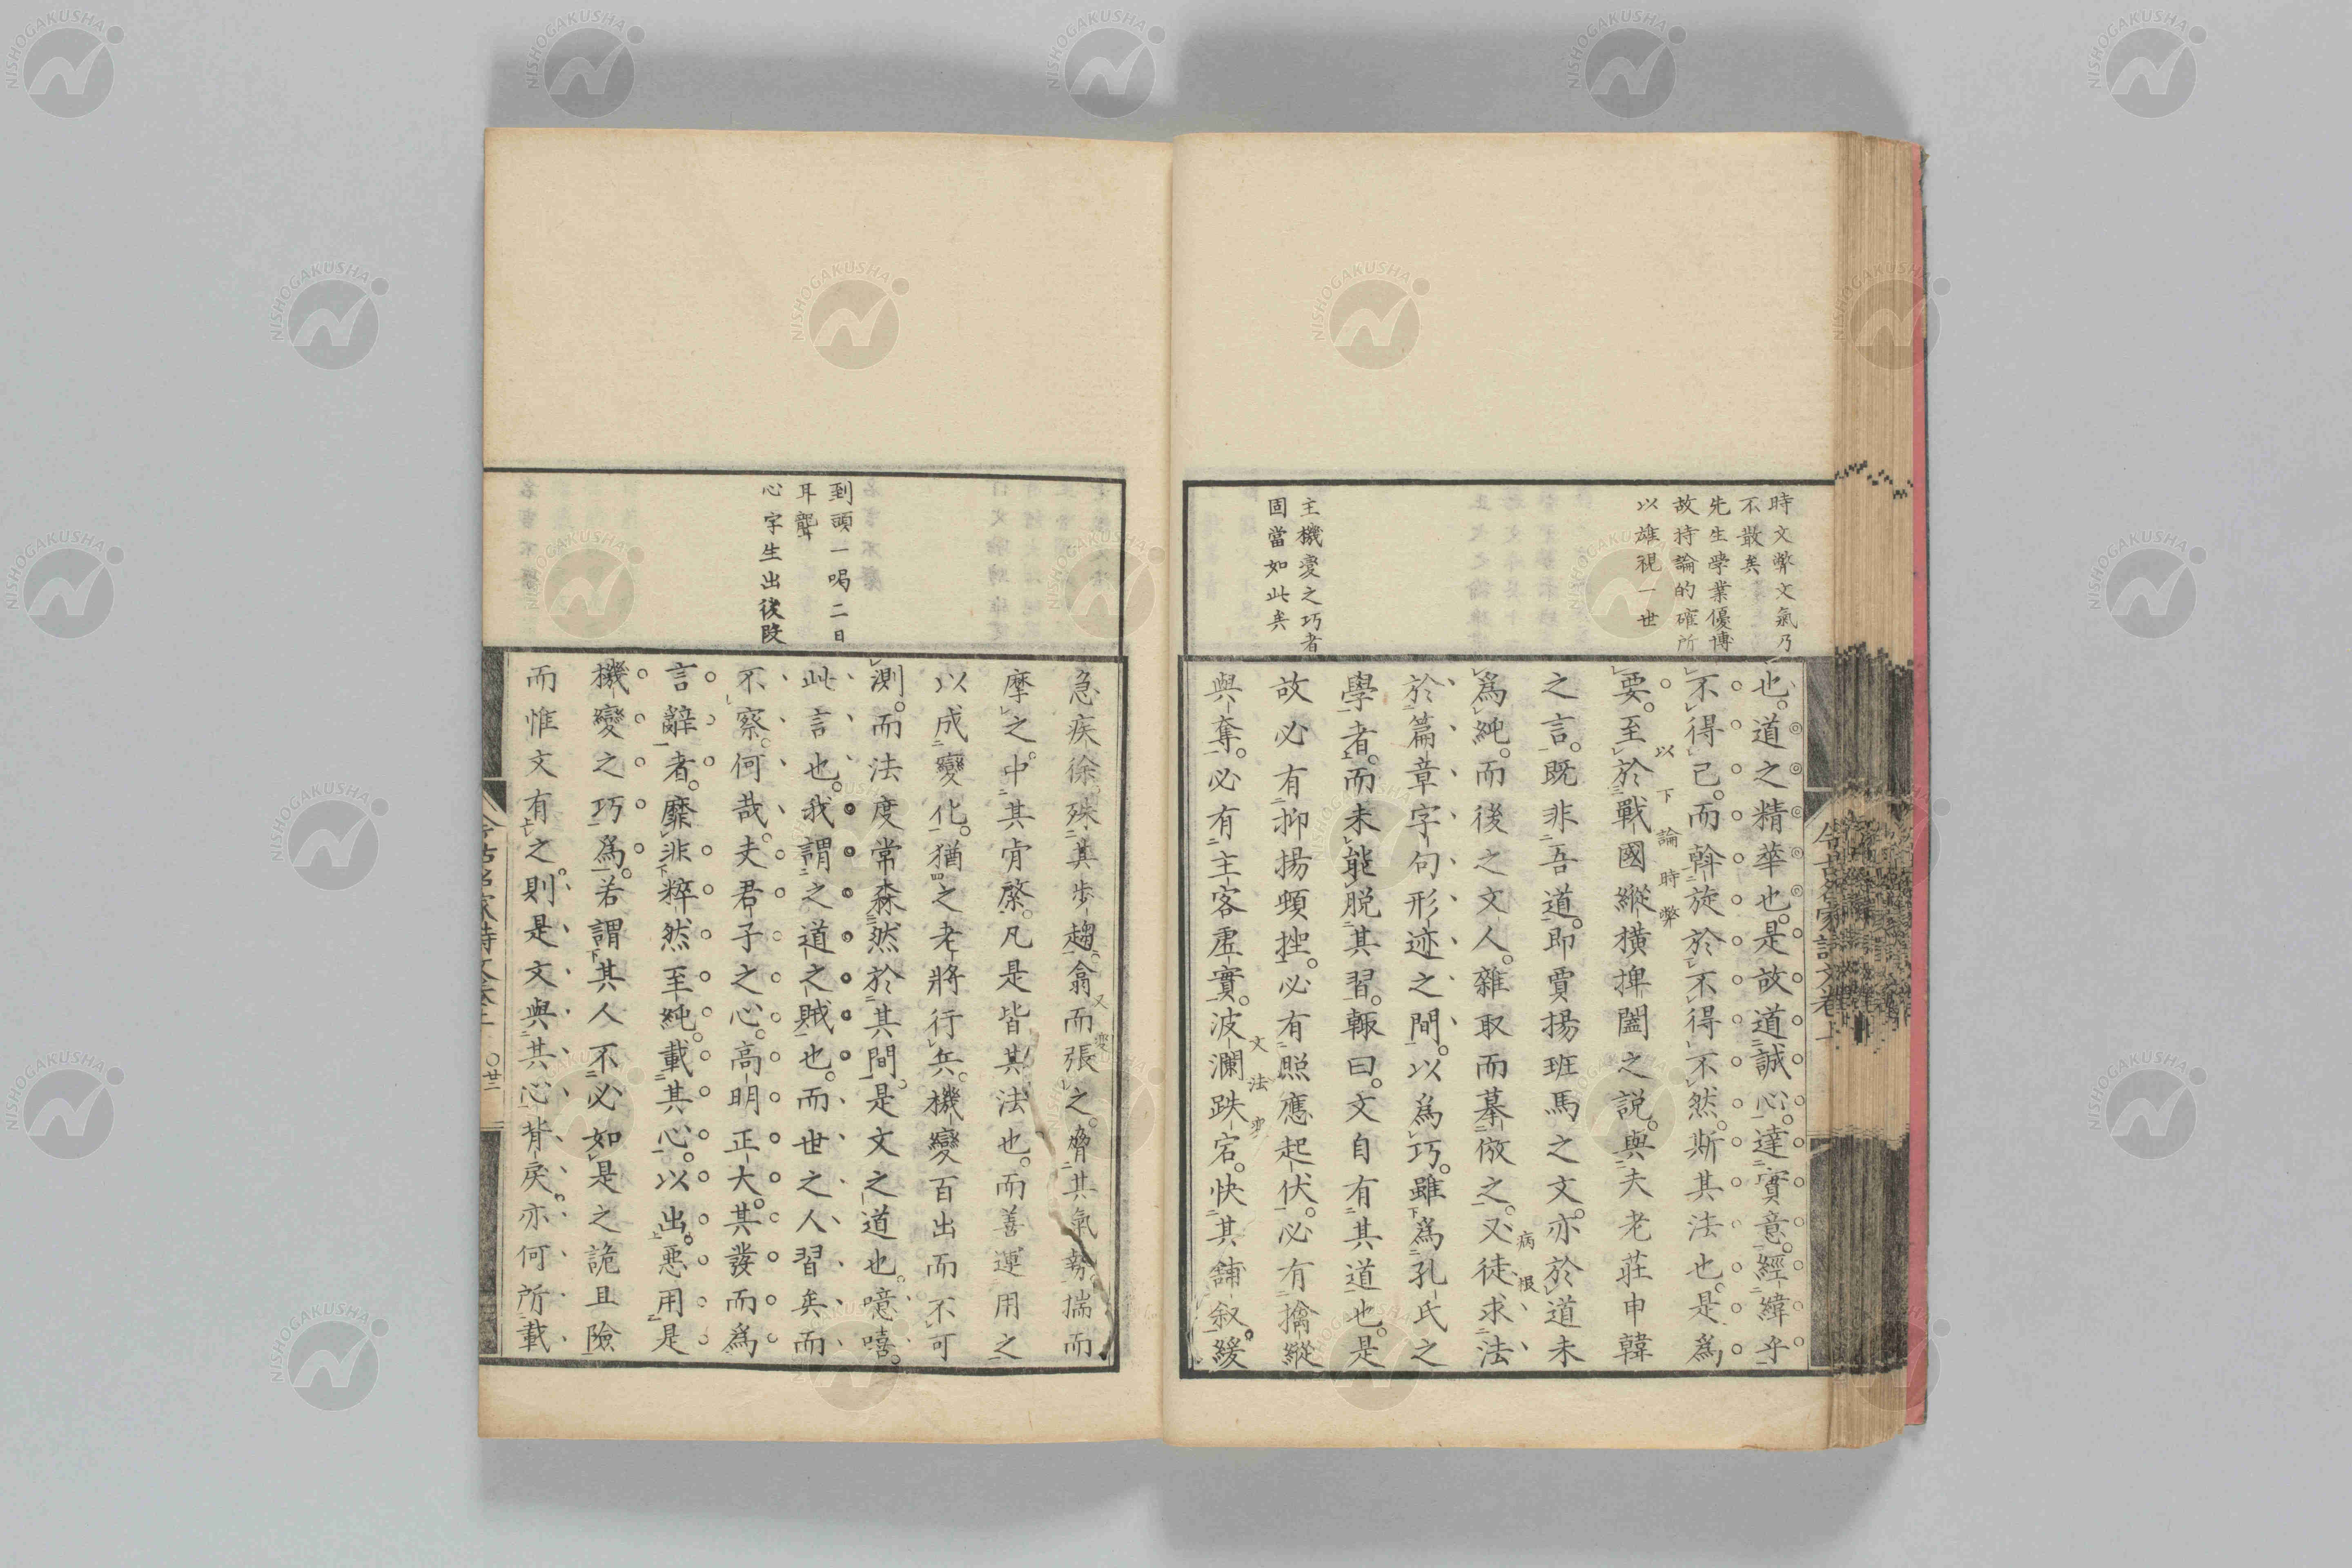 時文弊文氣乃
不散矣
先生學業優博
故持論的確所
以雄視一世
主機變之巧者
固當如此矣
也。道之精華也。是故道誠心。達實意。經緯乎
不得已。而斡旋於不得不然。斯其法也。是爲
要。至於戰國縱橫捭闔之説。與夫老莊申韓
以下論時弊
之言。既非吾道。即賈揚班馬之文。亦於道未
爲純。而後之文人。雜取而摹倣之。又徒求法
病根
於篇章字句形迹之間。以爲巧。雖爲孔氏之
學者。而未能脱其習。輙曰。文自有其道也。是
故必有抑揚頓挫。必有照應起伏。必有擒縱
與奪。必有主客虛實。波瀾跌宕。快其鋪叙緩
文法變
今古名家詩文卷上
到頭一喝二日
耳聾
心字生出後段
急疾徐殊其歩趨。翕而張之。脅其氣勢。揣而
又變
摩之。中其肯綮。凡是皆其法也。而善運用之
以成變化。猶之老將行兵。機變百出而不可
測。而法度常森然於其間。是文之道也。噫嘻。
此言也。我謂之道之賊也。而世之人習矣而
不察。何哉。夫君子之心。高明正大。其發而爲
言辭者。靡非粹然至純。載其心。以出。惡用是
機變之巧爲。若謂其人不必如是之詭且險
而惟文有之。則是文與其心背戻。亦何所載
廿二